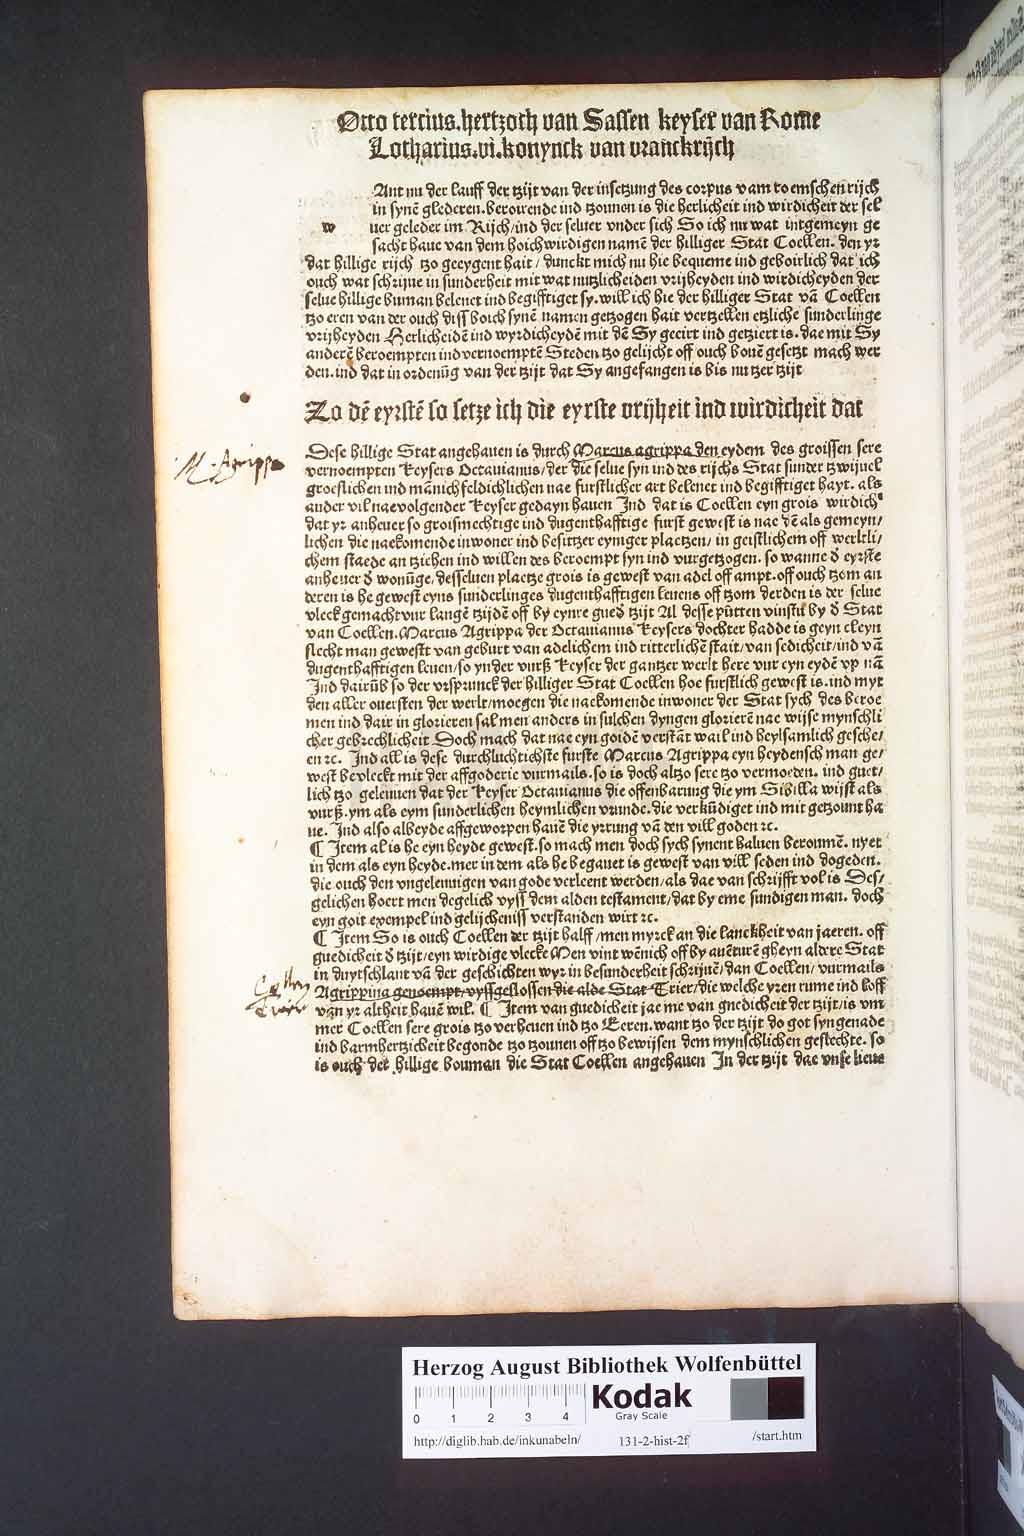 Otto tercius.hertzoch van Sassen keyser van Rome
Lotharius.vi.konynck van vranckrijch
w
Ant nu der lauff der tzijt van der insetzung des corpus vam roemschen rijch
in synē glederen.beroirende ind tzounen is die herlicheit ind wirdicheit der sel
uer geleder im Rijch/ind der seluer vnder sich So ich nu wat intgemeyn ge
sacht haue van dem hoichwirdigen namē der hilliger Stat Coellen. den yr
dat hillige rijch tzo geeygent hait/ dunckt mich nu hie bequeme ind geboirlich dat ich
ouch wat schrijue in sunderheit mit wat nutzlicheiden vrijheyden ind wirdicheyden der
selue hillige buman belenet ind begifftiget sy.will ich hie der hilliger Stat vā Coellen
tzo eren van der ouch diss boich synē namen getzogen hait vertzellen etzliche sunderlinge
vrijheyden Herlicheidē ind wyrdicheydē mit dē Sy geeirt ind getziert is.dae mit Sy
anderē beroempten ind vernoemptē Steden tzo gelijcht off ouch bouē gesetzt mach wer
den.ind dat in ordenūg van der tzijt dat Sy angefangen is bis nu tzer tzijt
Zo dē eyrstē so setze ich die eyrste vrijheit ind wirdicheit dat
Dese hillige Stat angehauen is durch Marcus agrippa den eydem des groissen sere
M. Agrippa
vernoempten Keysers Octauianus/der die selue syn ind des rijchs Stat sunder tzwijuel
groeslichen ind mānichfeldichlichen nae furstlicher art belenet ind begifftiget hayt. als
ander vil naevolgender Keyser gedayn hauen Ind dat is Coellen eyn grois wirdich
dat yr anheuer so groismechtige ind dugenthafftige furst gewest is nae dē als gemeyn/
lichen die naekomende inwoner ind besitzer eyniger plaetzen/ in geistlichem off werltli/
chem staede an tziehen ind willen des beroempt syn ind vurgetzogen. so wanne d eyrste
anheuer d wonūge.desseluen plaetze grois is gewest van adel off ampt.off ouch tzom an
deren is he gewest eyns sunderlinges dugenthafftigen leuens off tzom derden is der selue
vleck gemacht vur langē tzijdē off by eynre gued tzijt Al desse pūtten vinstu by d Stat
van Coellen.Marcus Agrippa der Octauianus Keysers dochter hadde is geyn cleyn
slecht man gewestt van geburt van adelichem ind ritterlichē stait/van sedicheit/ind vā
dugenthafftigen leuen/so yn der vurß Keyser der gantzer werlt here vur eyn eydē vp nā
Ind dairūb so der vrsprunck der hilliger Stat Coellen hoe furstlich gewest is.ind myt
den aller ouersten der werlt/moegen die naekomende inwoner der Stat sych des beroe
men ind dair in glorieren sal men anders in sulchen dyngen glorierē nae wijse mynschli
cher gebrechlicheit Doch mach dat nae eyn goidē verstāt wail ind heylsamlich gesche/
en ꝛc. Ind all is dese durchluchtichste furste Marcus Agrippa eyn heydensch man ge/
west bevleckt mit der affgoderie vurmails.so is doch altzo sere tzo vermoeden. ind guet/
lich tzo geleuuen dat der Keyser Octauianus die offenbarung die ym Sibilla wijst als
vurß.ym als eym sunderlichen heymlichen vrunde.die verkūdiget ind mit getzount ha
ue. Ind also albeyde affgeworpen hauē die yrrung vā den vill goden ꝛc.
¶ Item al is he eyn heyde gewest.so mach men doch sych synent haluen beroumē. nyet
in dem als eyn heyde.mer in dem als he begauet is gewest van vill seden ind dogeden.
die ouch den vngeleuuigen van gode verleent werden/als dae van schrijfft vol is Des/
gelichen hoert men degelich vyss dem alden testament/dat by eme sundigen man. doch
eyn goit exempel ind gelijcheniss verstanden wirt ꝛc.
¶ Item So is ouch Coellen der tzijt halff/men myrck an die lanckheit van jaeren. off
guedicheit d tzijt/eyn wirdige vlecke Men vint wēnich off by auēturē gheyn aldere Stat
in duytschlant vā der geschichten wyr in besunderheit schrijuē/dan Coellen/vurmails
Collen
Agrippina genoempt/vyssgeslossen die alde Stat Trier/die welche yren rume ind loff
Trier
van yr altheit hauē wil. ¶ Item van guedicheit jae me van gnedicheit der tzijt/is vm
mer Coellen sere grois tzo verheuen ind tzo Eeren.want tzo der tzijt do got syn genade
ind barmhertzicheit begonde tzo tzounen off tzo bewijsen dem mynschlichen geslechte. so
is ouch der hillige bouman die Stat Coellen angehauen In der tzijt dae vnse lieue
Herzog August Bibliothek Wolfenbüttel
0 1 2 3 4
Kodak
Gray Scale
http://diglib.hab.de/inkunabeln/ 131-2-hist-2f /start.htm